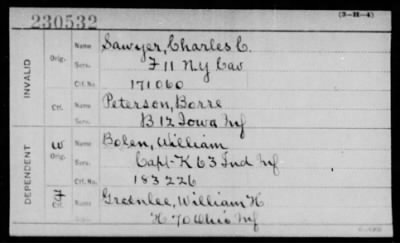 230532
(3-H-4)
INVALID
Orig. Name Sawyer, Charles C.
Serv. F 11 N.Y Cav
Ctf. No. 171060
Ctf. Name Peterson, Borre
Serv. B 12 Iowa Inf
DEPENDENT
W Orig. Name Bolen, William
Serv. Capt-K 63 Ind Inf
Ctf. No. 183226
Ctf. Name Greenlee, William H
H 70 Ohio Inf